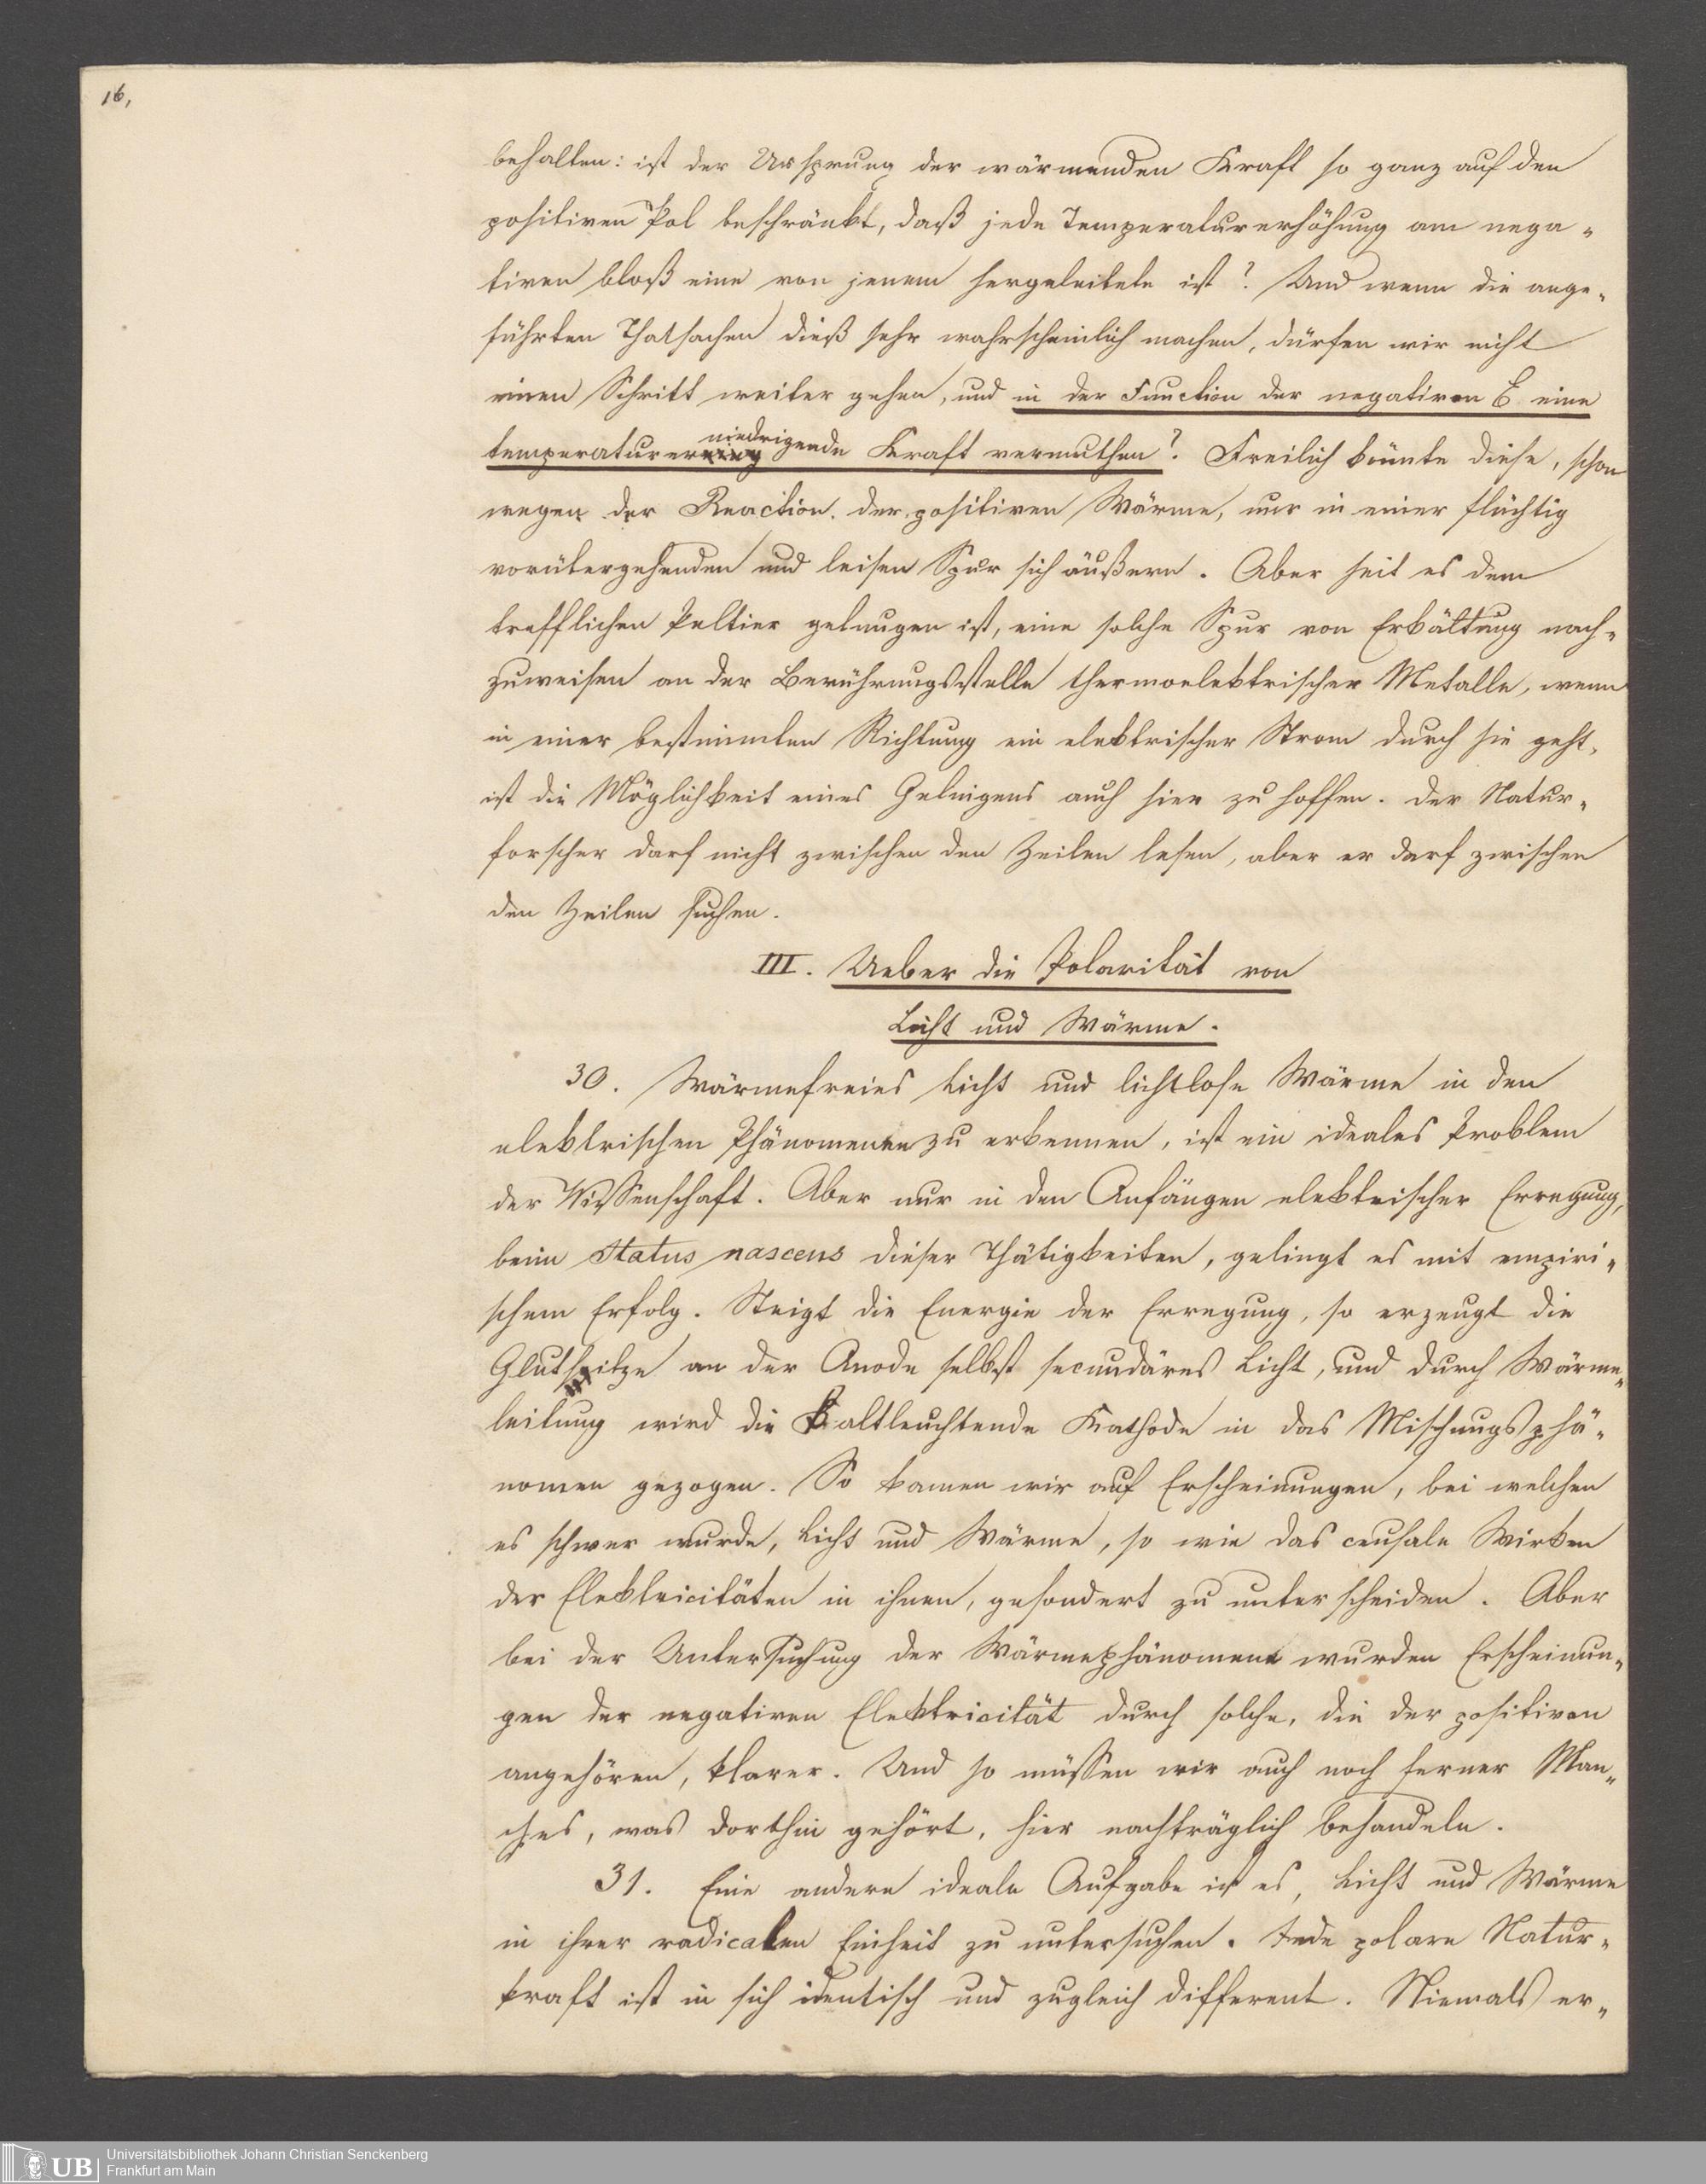 16,
behalten: ist der Ursprung der wärmenden Kraft so ganz auf den
positiven Pol beschränkt, daß jede Temperaturerhöhung am nega-
tiven bloß eine von jenem hergeleitete ist? Und wenn die ange-
führten Thatsachen dieß sehr wahrscheinlich machen, dürfen wir nicht
einen Schritt weiter gehen, und in der Function der negativen E eine
temperaturerniedrigende Kraft vermuthen? Freilich könnte diese, schon
wegen der Reaction der positiven Wärme, nur in einer flüchtig
vorübergehenden und leisen Spur sich äußern. Aber seit es dem
trefflichen Peltier gelungen ist, eine solche Spur von Erkältung nach-
zuweisen an der Berührungsstelle thermoelektrischer Metalle, wenn
in einer bestimmten Richtung ein elektrischer Strom durch sie geht,
ist die Möglichkeit eines Gelingens auch hier zu hoffen. Der Natur-
forscher darf nicht zwischen den Zeilen lesen, aber er darf zwischen
den Zeilen suchen.
III. Ueber die Polarität von
Licht und Wärme.
30. Wärmefreies Licht und lichtlose Wärme in den
elektrischen Phänomenen zu erkennen, ist ein ideales Problem
der Wissenschaft. Aber nur in den Anfängen elektrischer Erregung,
beim Status nascens dieser Thätigkeiten, gelingt es mit empiri-
schem Erfolg. Steigt die Energie der Erregung, so erzeugt die
Gluthitze an der Anode selbst secundäres Licht, und durch Wärme-
leitung wird die kaltleuchtende Kathode in das Mischungsphä-
nomen gezogen. So kamen wir auf Erscheinungen, bei welchen
es schwer wurde, Licht und Wärme, so wie das causale Wirken
der Elektricitäten in ihnen, gesondert zu unterscheiden. Aber
bei der Untersuchung der Wärmephänomene wurden Erscheinun-
gen der negativen Elektricität durch solche, die der positiven
angehören, klarer. Und so müssen wir auch noch ferner Man-
ches, was dorthin gehört, hier nachträglich behandeln.
31. Eine andere ideale Aufgabe ist es, Licht und Wärme
in ihrer radicalen Einheit zu untersuchen. Jede polare Natur-
kraft ist in sich identisch und zugleich different. Niemals er-
UB Universitätsbibliothek Johann Christian Senckenberg
Frankfurt am Main